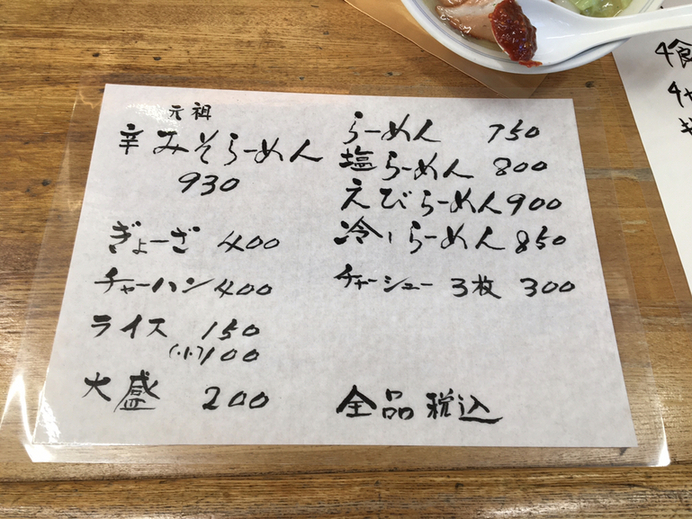 元祖
辛みそらーめん
930
ぎょーざ 400
チャーハン 400
ライス 150
(小)100
大盛 200
らーめん 750
塩らーめん 800
えびらーめん 900
冷しらーめん 850
チャーシュー 3枚 300
全品税込
4食